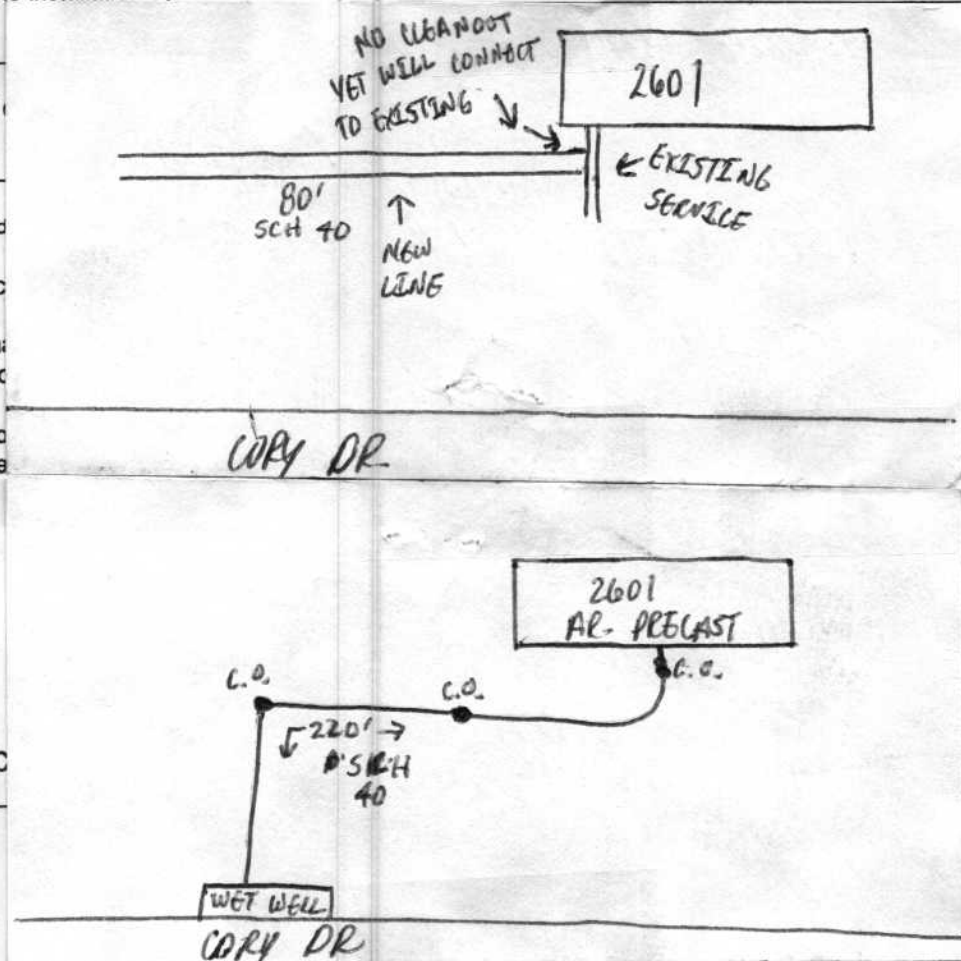 NO CLEANOUT
YET WILL CONNECT
TO EXISTING
2601
EXISTING
SERVICE
80'
SCH 40
NEW
LINE
CORY DR
2601
AR. PRECAST
C.O.
C.O.
C.O.
220'
SCH
40
WET WELL
CORY DR